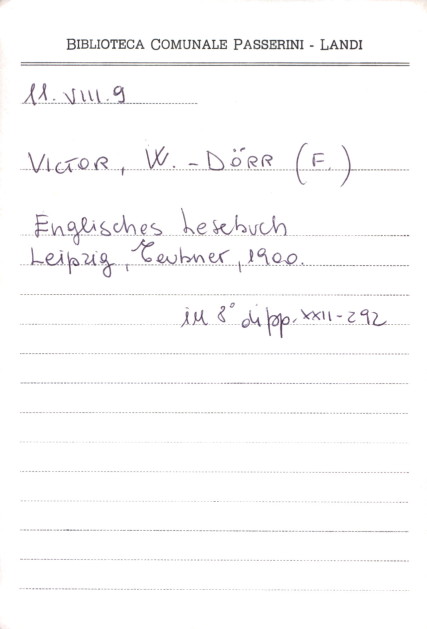 BIBLIOTECA COMUNALE PASSERINI - LANDI
11.VIII.9
VICTOR, W. - DÖRR (F.)
Englisches Lesebuch
Leipzig, Teubner, 1900.
in 8° di pp. XXII-292